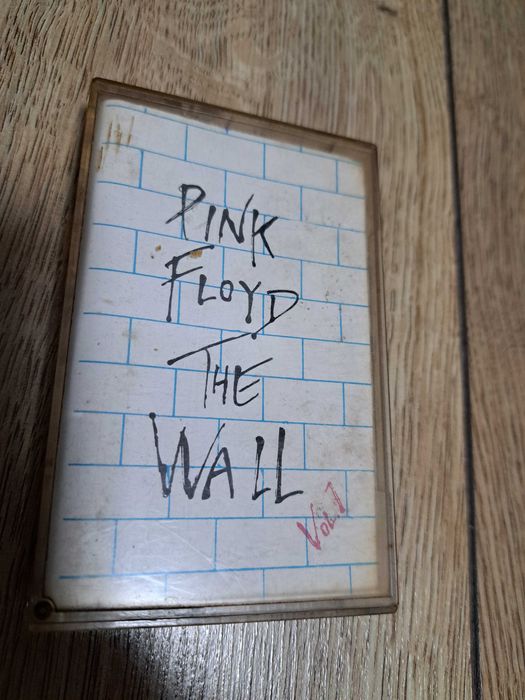 PINK
FLOYD
THE
WALL
VOL.1